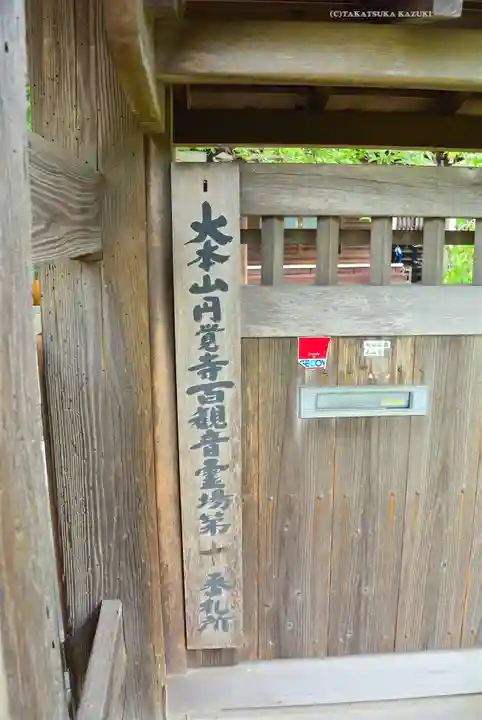 (C)TAKATSUKA KAZUKI
大本山円覚寺百観音霊場第十番札所
SECOM